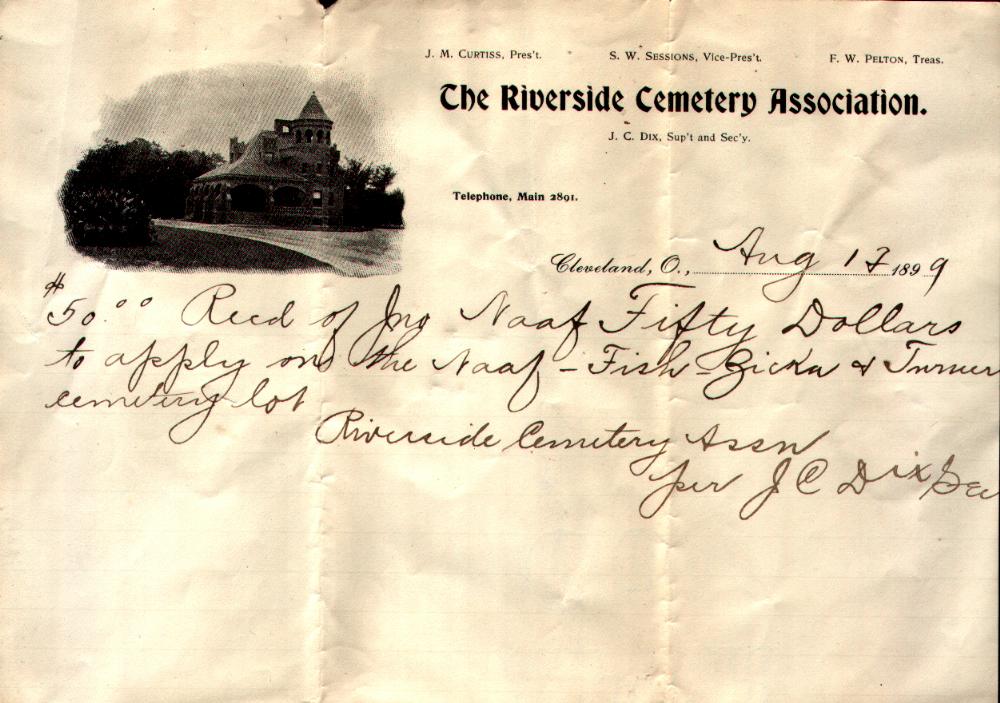 J. M. Curtiss, Pres't. S. W. Sessions, Vice-Pres't. F. W. Pelton, Treas.
The Riverside Cemetery Association.
J. C. Dix, Sup't and Sec'y.
Telephone, Main 2891.
Cleveland, O., Aug 17 1899
$50.00 Recd of Jno Naaf Fifty Dollars
to apply on the Naaf - Fish - Zicka & Turner
cemetery lot
Riverside Cemetery Assn
per J C Dix Sec